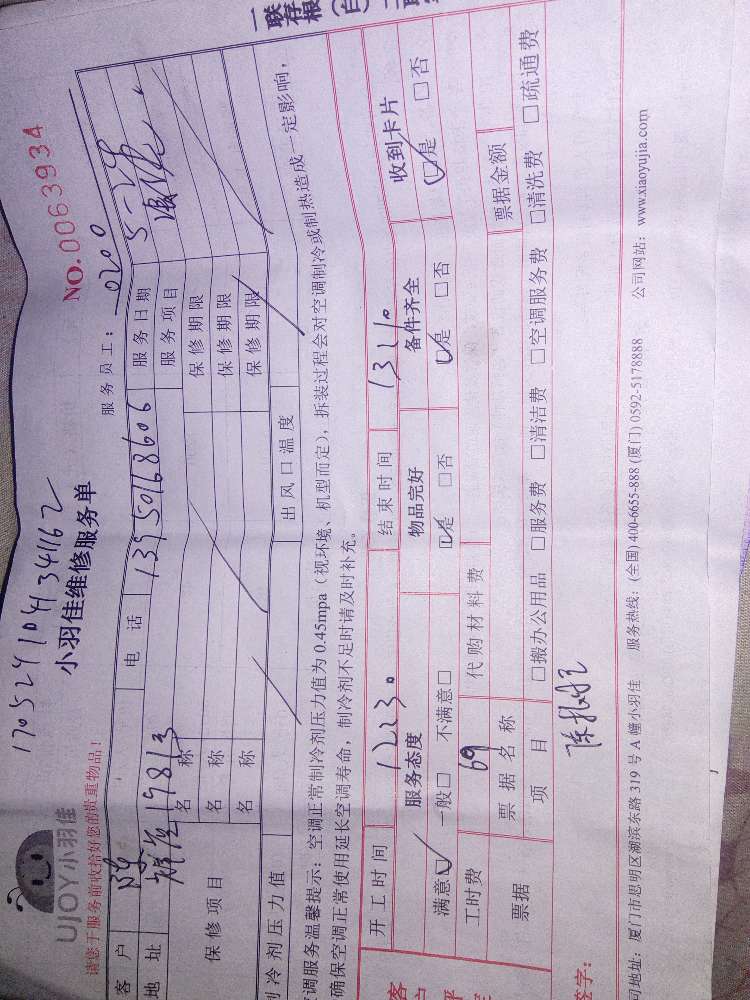 一联存根(白)二联
170529104134162
小羽佳维修服务单
NO.0063934
UJOY小羽佳
请您于服务前收拾好您的贵重物品！
服务员工： 0200
客户 陈 电话 13950168606 服务日期 5-29
地址 19813 服务项目
保修项目 名称 保修期限
名称 保修期限
名称 保修期限
制冷剂压力值 出风口温度
调服务温馨提示：空调正常制冷剂压力值为 0.45mpa（视环境、机型而定），拆装过程会对空调制冷或制热造成一定影响，
确保空调正常使用延长空调寿命，制冷剂不足时请及时补充。
开工时间 1230 结束时间 1310
客户评 服务态度 物品完好 备件齐全 收到卡片
满意☑ 一般□ 不满意□ ☑是 □否 ☑是 □否 ☑是 □否
工时费 69 代购材料费
票据 票据名称 票据金额
项目 □搬办公用品 □服务费 □清洁费 □空调服务费 □清洗费 □疏通费
签字：
司地址：厦门市思明区湖滨东路 319 号 A 幢小羽佳 服务热线：(全国) 400-6655-888 (厦门) 0592-5178888 公司网站：www.xiaoyujia.com